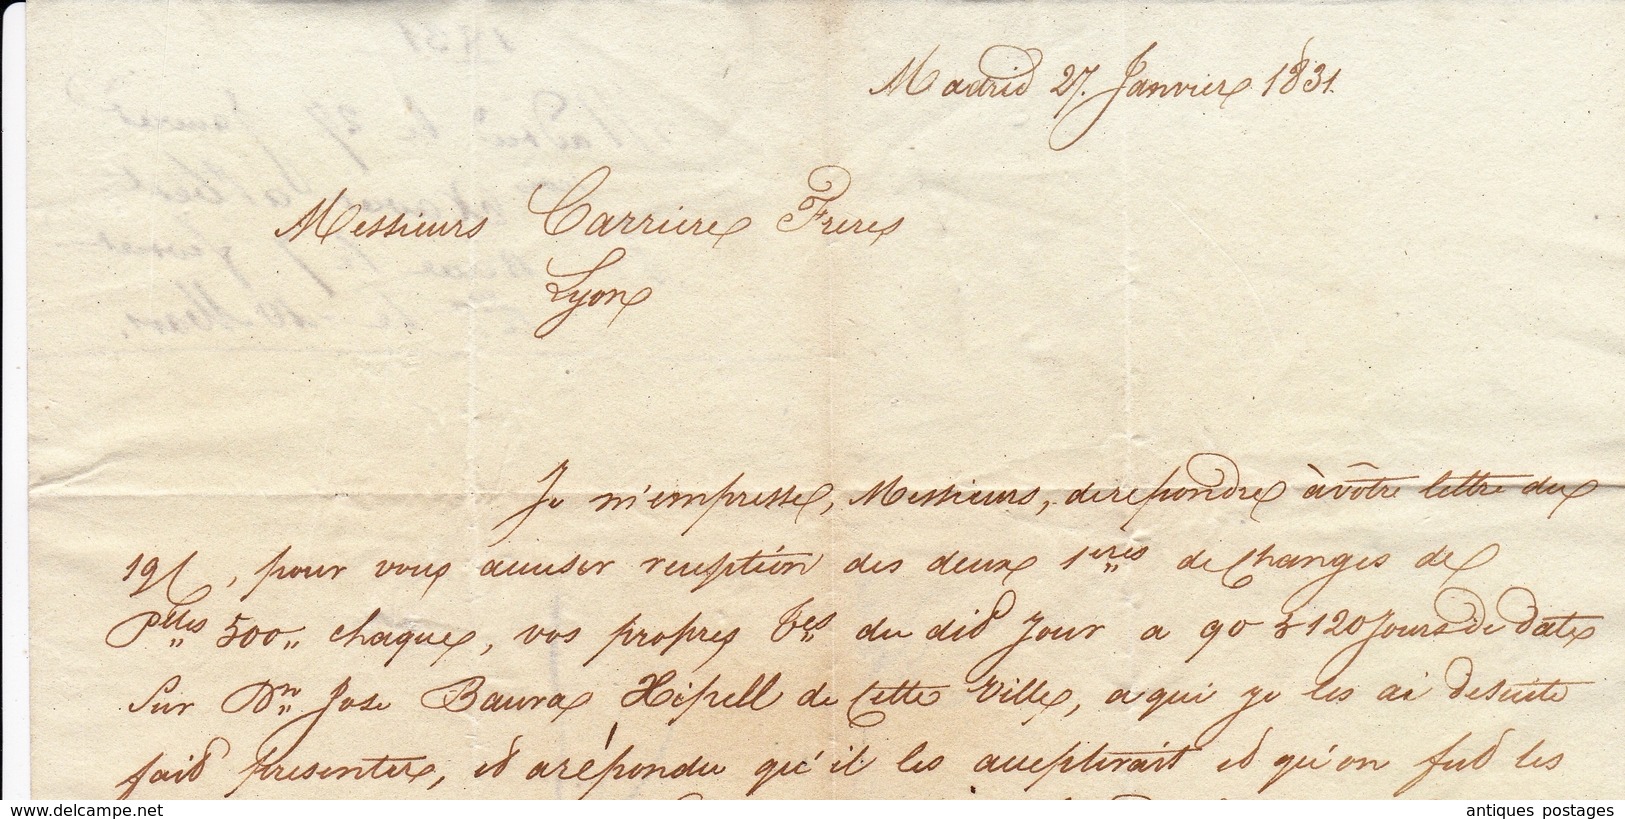 Madrid 27. Janvier 1831.
Messieurs Carriere Freres
Lyon
Je m'empresse, Messieurs, de repondre à vôtre lettre du
19 , pour vous accuser reception des deux 1eres de Changes de
Pttes 500 „ chaque, vos propres Tes du did Jour a 90 & 120 Jours de date
Sur Dn Jose Baura de Cette Ville, a qui je les ai desuite
faid presenter, ed a répondu qu'il les accepterait ed qu'on fud les
antiques postages